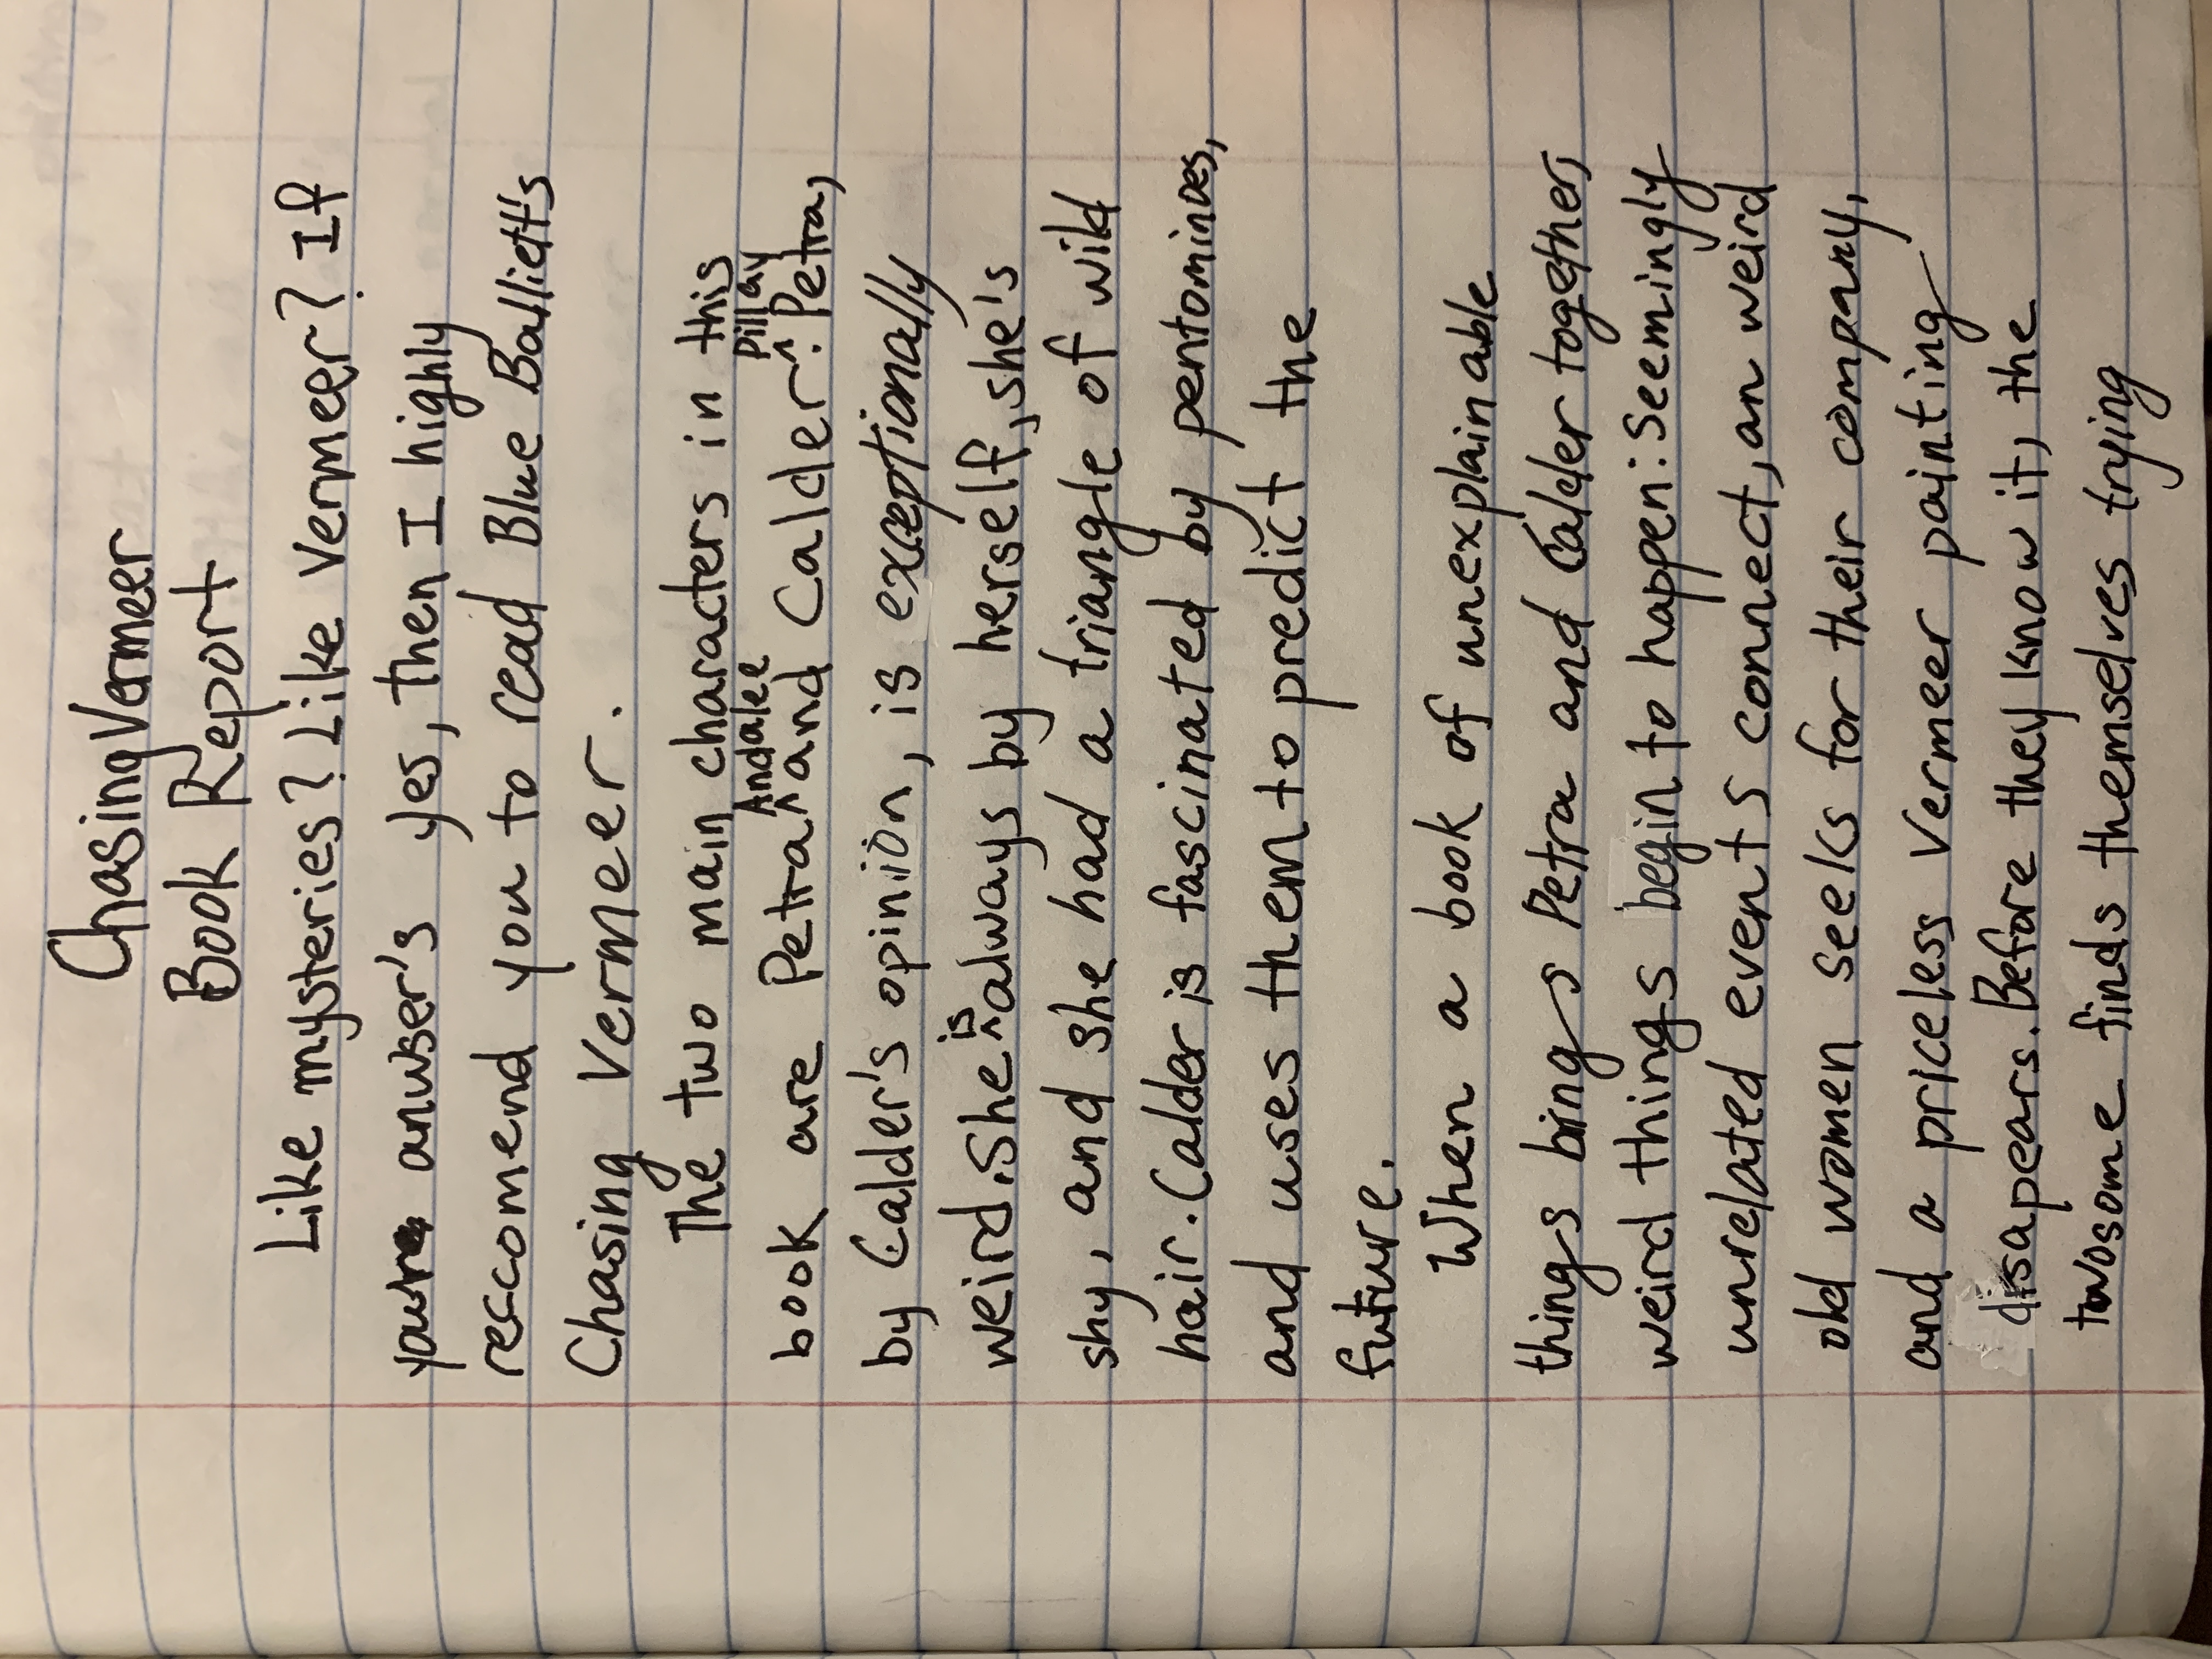 Chasing Vermeer
Book Report
Like mysteries? Like Vermeer? If
your anwser's yes, then I highly
reccomend you to read Blue Balliett's
Chasing Vermeer.
The two main characters in this
book are Petra ^Andalee and Calder ^Pillay. Petra,
by Calder's opinion, is exceptionally
weird. She ^is always by herself, she's
shy, and she had a triangle of wild
hair. Calder is fascinated by pentominoes,
and uses them to predict the
future.
When a book of unexplainable
things bings Petra and Calder together,
weird things begin to happen: Seemingly
unrelated events connect, an weird
old women seeks for their company,
and a priceless Vermeer painting
disapears. Before they know it, the
twosome finds themselves trying